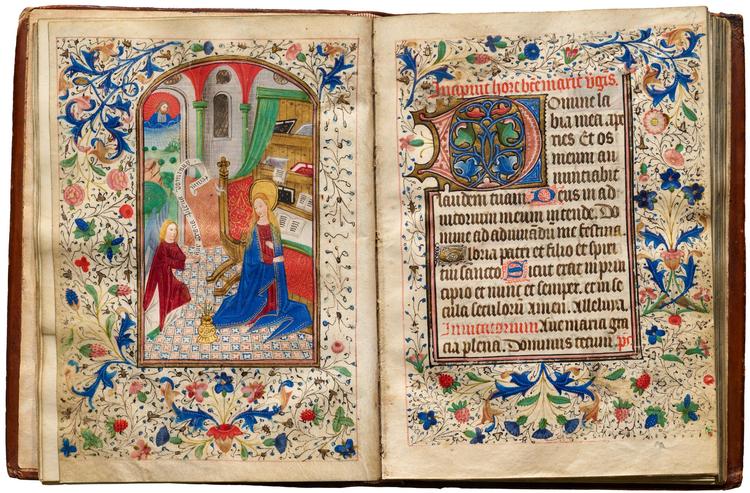 Incipiut hore bte marie vgis.
Domine la
bia mea ape
ries Et os
meum an
nunciabit
laudem tuam Deus in ad
iutorium meum intende. Do
mine ad adiuvandu me festina
Gloria patri et filio et spiri
tui sancto Sicut erat in prin
cipio et nunc et semper. et in se
cula seculoru amen. Alleluya
Invitatorium. Ave maria gra
cia plena. Dominus tecum. ps